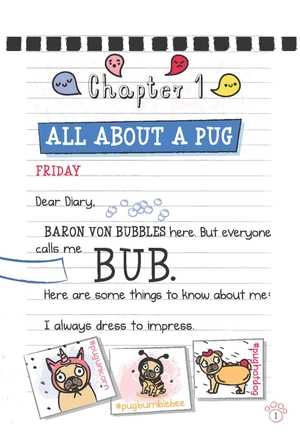 Chapter 1
ALL ABOUT A PUG
FRIDAY
Dear Diary,
BARON VON BUBBLES here. But everyone
calls me BUB.
Here are some things to know about me:
I always dress to impress.
#pugunicorn
#pugbumblebee
#pughotdog
1